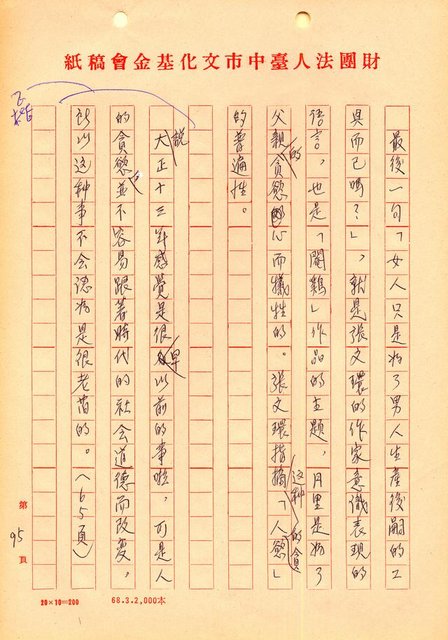 財團法人臺中市文化基金會稿紙
最後一句「女人只是為了男人生產後嗣的工
具而已嗎？」，就是張文環的作家意識表現的
語言，也是「閹鷄」作品的主題，月里是為了
父親的貪慾心而犧牲的。張文環指摘「人慾」
這种的貪
的普遍性。
大正十三年感覺是很早以前的事啦，可是人
說
的貪慾並不容易跟著時代的社会道德而改変，
所以这种事不会認為是很老舊的。（65頁）
第95頁
20×10=200
68.3.2,000本